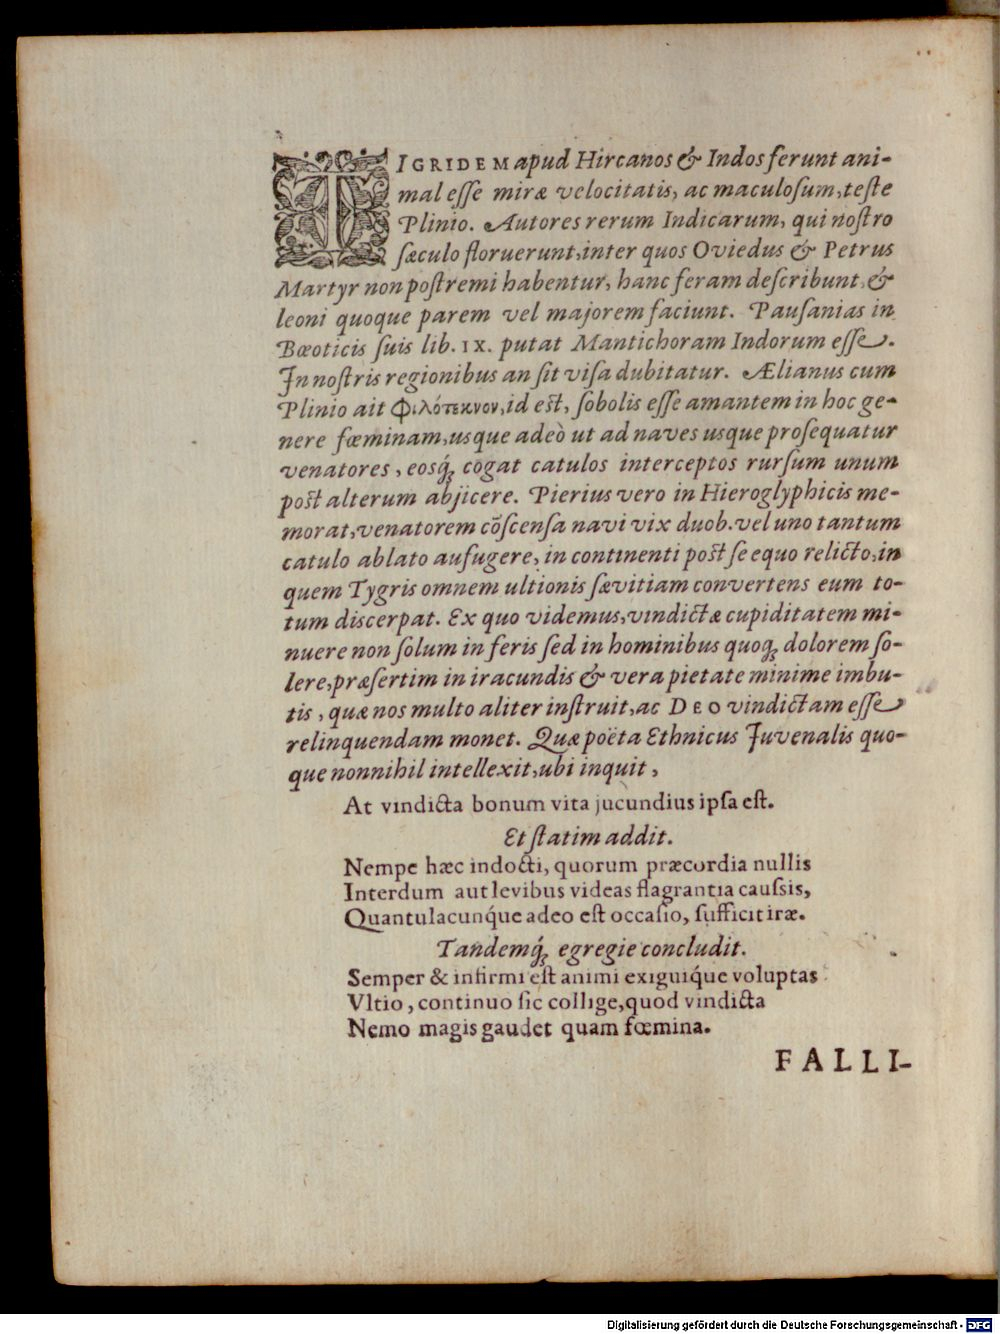 TIGRIDEM apud Hircanos & Indos ferunt ani-
mal eſſe miræ velocitatis, ac maculoſum, teſte
Plinio. Autores rerum Indicarum, qui noſtro
ſæculo floruerunt, inter quos Oviedus & Petrus
Martyr non poſtremi habentur, hanc feram deſcribunt, &
leoni quoque parem vel majorem faciunt. Pauſanias in
Bœoticis ſuis lib. IX. putat Mantichoram Indorum eſſe.
In noſtris regionibus an ſit viſa dubitatur. Ælianus cum
Plinio ait Φιλότεκνον, id eſt, ſobolis eſſe amantem in hoc ge-
nere fœminam, usque adeò ut ad naves usque proſequatur
venatores, eosq́; cogat catulos interceptos rurſum unum
poſt alterum abjicere. Pierius vero in Hieroglyphicis me-
morat, venatorem cõſcenſa navi vix duob. vel uno tantum
catulo ablato aufugere, in continenti poſt ſe equo relicto, in
quem Tygris omnem ultionis ſævitiam convertens eum to-
tum diſcerpat. Ex quo videmus, vindictæ cupiditatem mi-
nuere non ſolum in feris ſed in hominibus quoq; dolorem ſo-
lere, præſertim in iracundis & vera pietate minime imbu-
tis, quæ nos multo aliter inſtruit, ac DEO vindictam eſſe
relinquendam monet. Quæ poëta Ethnicus Juvenalis quo-
que nonnihil intellexit, ubi inquit,
At vindicta bonum vita jucundius ipſa eſt.
Et ſtatim addit.
Nempe hæc indocti, quorum præcordia nullis
Interdum aut levibus videas flagrantia cauſsis,
Quantulacunq́ue adeo eſt occaſio, ſufficit iræ.
Tandemq́; egregie concludit.
Semper & infirmi eſt animi exiguiq́ue voluptas
Vltio, continuo ſic collige, quod vindicta
Nemo magis gaudet quam fœmina.
FALLI-
Digitalisierung gefördert durch die Deutsche Forschungsgemeinschaft - DFG